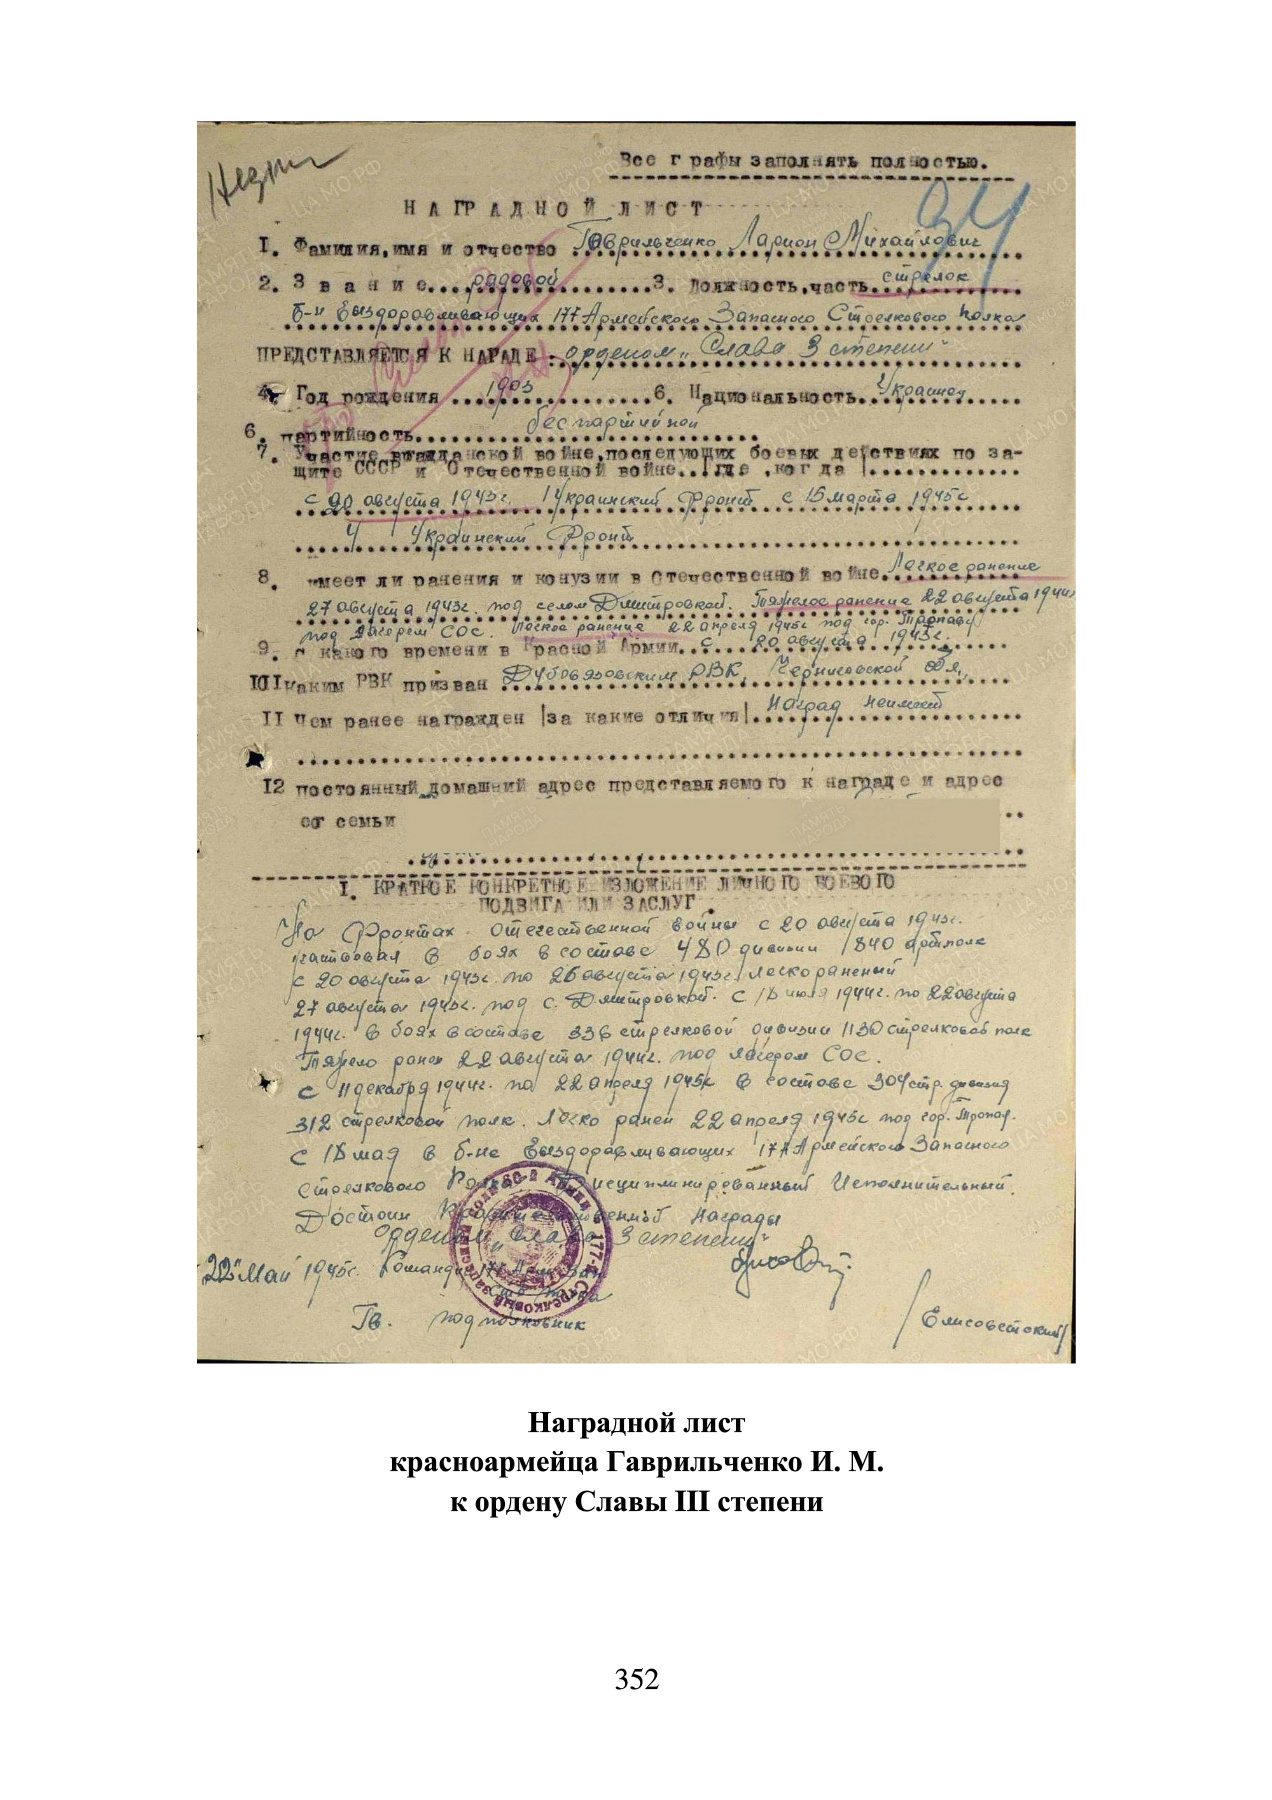 Все графы заполнять полностью.
НАГРАДНОЙ ЛИСТ
34
1. Фамилия, имя и отчество Гаврильченко Ларион Михайлович
2. Звание рядовой 3. Должность, часть стрелок
б-н Выздоравливающих 177 Армейского Запасного Стрелкового Полка
ПРЕДСТАВЛЯЕТСЯ К НАГРАДЕ: орденом „Слава 3 степени"
4. Год рождения 1903 6. Национальность Украинец
6. партийность беспартийной
7. Участие в гражданской войне, последующих боевых действиях по за-
щите СССР и Отечественной войне. |где, когда|
с 20 августа 1943г. 1 Украинский Фронт с 15 марта 1945г
4 Украинский Фронт
8. имеет ли ранения и конузии в Отечественной войне. Легкое ранение
27 августа 1943г. под селом Дмитровкой. Тяжелое ранение 22 августа 1944г
под Лагерем СОС. Легкое ранение 22 апреля 1945г под гор. Тропау
9. с какого времени в Красной Армии. с 20 августа 1943г.
10 каким РВК призван Дубовязовским РВК, Черниговской обл,
11 Чем ранее награжден |за какие отличия| Наград неимеет
12 постоянный домашний адрес представляемого к награде и адрес
ег семьи
I. КРАТКОЕ КОНКРЕТНОЕ ИЗЛОЖЕНИЕ ЛИЧНОГО БОЕВОГО
ПОДВИГА ИЛИ ЗАСЛУГ.
На Фронтах Отечественной войны с 20 августа 1943г.
участвовал в боях в составе 480 дивизии 1840 артполк
с 20 августа 1943г. по 26 августа 1943г. легко раненый
27 августа 1943г. под с. Дмитровкой. С 18 июля 1944г. по 22 августа
1944г. в боях в составе 336 стрелковой дивизии 1130 стрелковой полк
Тяжело ранен 22 августа 1944г. под лагерем СОС.
С 11 декабря 1944г. по 22 апреля 1945г в составе 304 стр. дивизия
312 стрелковой полк. Легко ранен 22 апреля 1945г под гор. Тропау.
С 18 мая в б-не Выздоравливающих 177 Армейского Запасного
Стрелкового Полка Дисциплинированный Исполнительный.
Достоин Правительственной Награды
Орденом „Слава 3 степени"
22 Май 1945г. Командир 177 Арм. Зап.
Стр. Полка
Гв. подполковник /Елисоветский/
Наградной лист
красноармейца Гаврильченко И. М.
к ордену Славы III степени
352